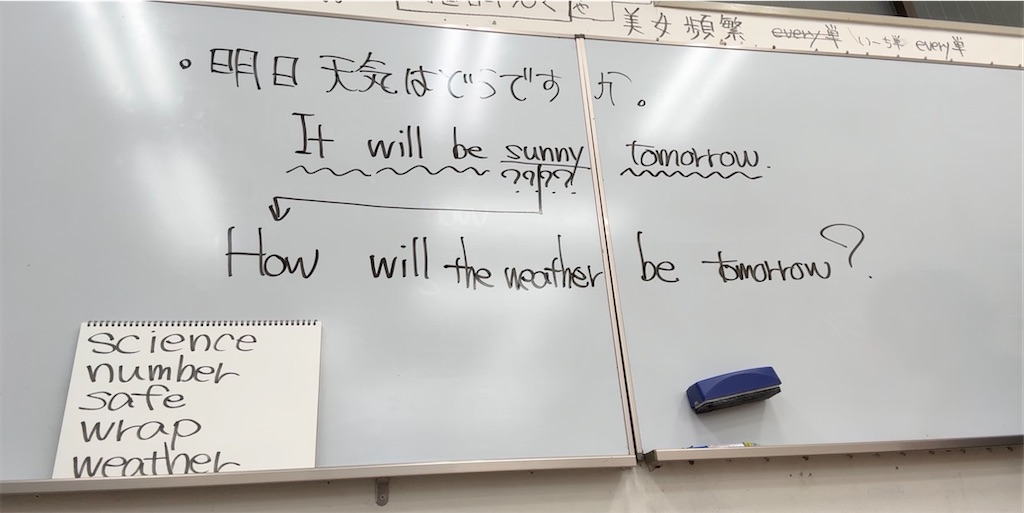 美女頻繁 every単 いーち単 every単
・明日天気はどうですか。
It will be sunny tomorrow.
????
How will the weather be tomorrow?
science
number
safe
wrap
weather